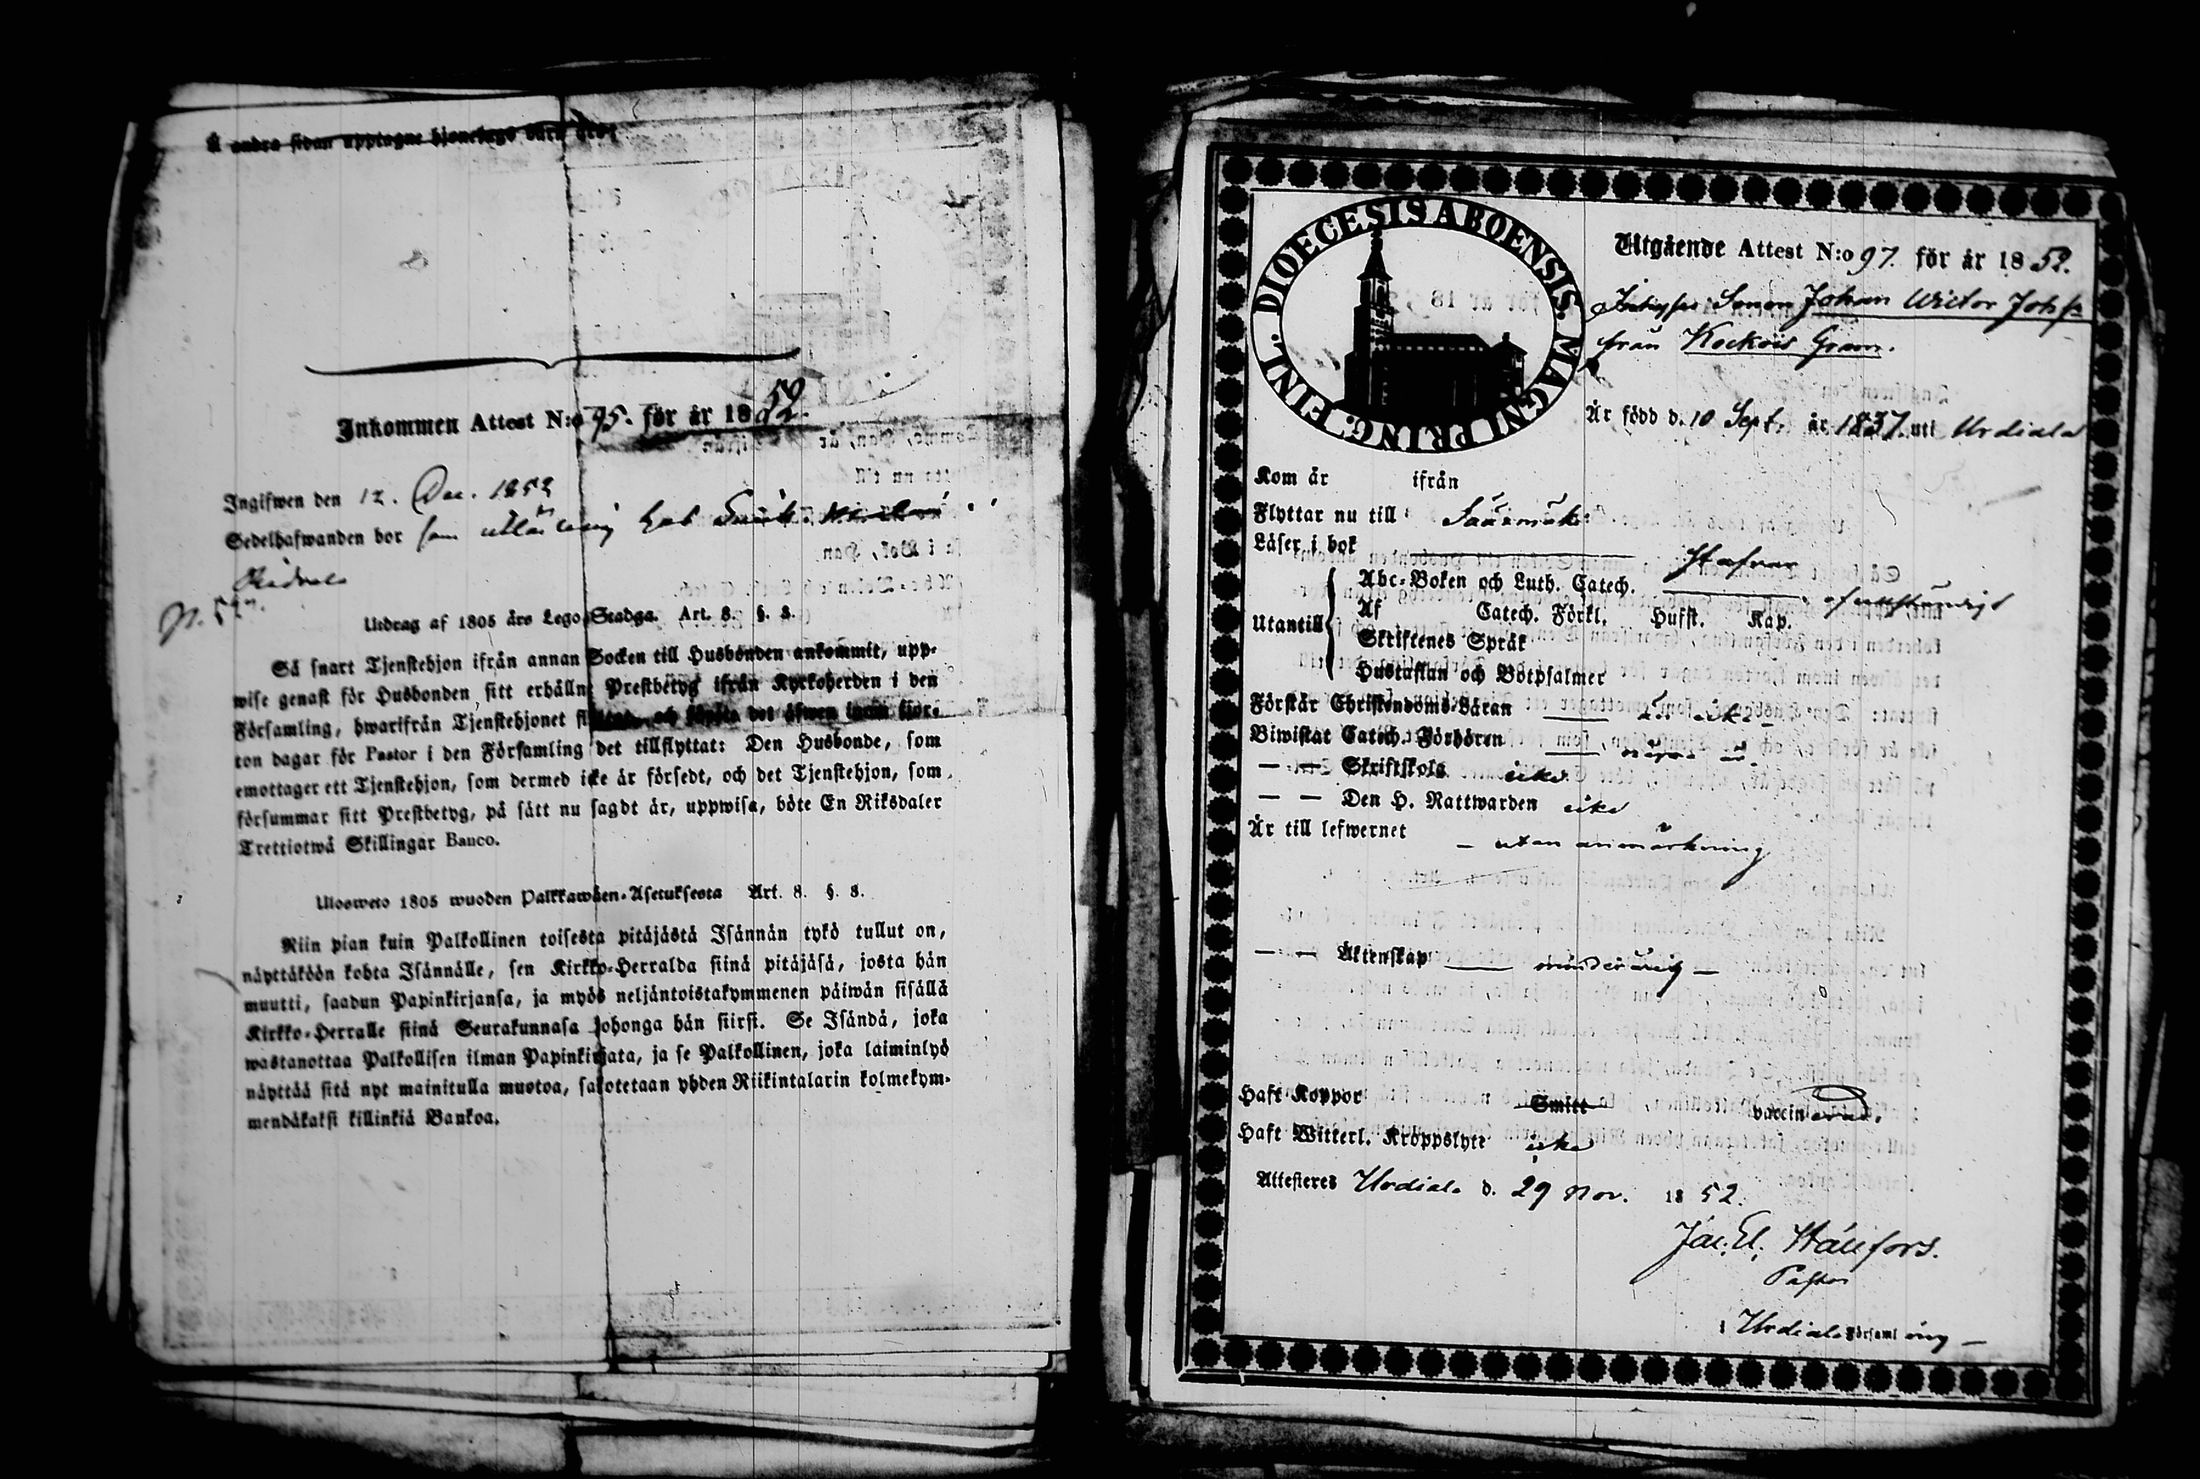 Å andra sidan upptagne hjonelags barn äro:
Inkommen Attest N:o 95. för år 1852.
Ingifwen den 12. Dec. 1852
Sedelhafwanden bor som
N. 527.
Utdrag af 1805 års Lego-Stadga. Art. 8. §. 8.
Så snart Tjenstehjon ifrån annan Socken till Husbonden ankommit, upp-
wise genast för Husbonden sitt erhållne Prestbetyg ifrån Kyrkoherden i den
Församling, hwarifrån Tjenstehjonet och det äfwen inom fjor-
ton dagar för Pastor i den Församling det tillflyttat: Den Husbonde, som
emottager ett Tjenstehjon, som dermed icke är försedt, och det Tjenstehjon, som
försummar sitt Prestbetyg, på sätt nu sagdt är, uppwisa, böte En Riksdaler
Trettiotwå Skillingar Banco.
Ulosweto 1805 wuoden Palkkawäen-Asetuksesta Art. 8. §. 8.
Niin pian kuin Palkollinen toisesta pitäjästä Isännän tykö tullut on,
näyttäköön kohta Isännälle, sen Kirkko-Herralda siinä pitäjäsä, josta hän
muutti, saadun Papinkirjansa, ja myös neljäntoistakymmenen päiwän sisällä
Kirkko-Herralle siinä Seurakunnasa johonga hän siirsi. Se Isändä, joka
wastanottaa Palkollisen ilman Papinkirjata, ja se Palkollinen, joka laiminlyö
näyttää sitä nyt mainitulla muotoa, sakotetaan yhden Riikintalarin kolmekym-
mendäkaksi killinkiä Bankoa.
DIOECESIS ABOENSIS. MAGNI PRING. FINL.
Utgående Attest N:o 97. för år 1852.
Sonen Johan Wictor Johss
från Kockois Gram.
Är född d. 10 Sept. år 1837. uti Urdiala
Kom år ifrån
Flyttar nu till Sääxmäki
Läser i bok
Utantill
Abc-Boken och Luth. Catech.
Af Catech. Förkl. Hufst. Kap.
Skriftenes Språk
Hustaflan och Botpsalmer
Förstår Christendoms-Läran
Biwistat Catech. Förhören
— — Skriftskola icke
— — Den H. Nattwarden icke
Är till lefwernet – utan anmärkning
— — Äktenskap — minderårig —
Haft Koppor Smitt vaccinerad.
Haft Witterl. Kroppslyte icke
Attesteres Urdiala d. 29 Nov. 1852.
Jac. El. Hällfors.
Pastor
i Urdiala Församling —